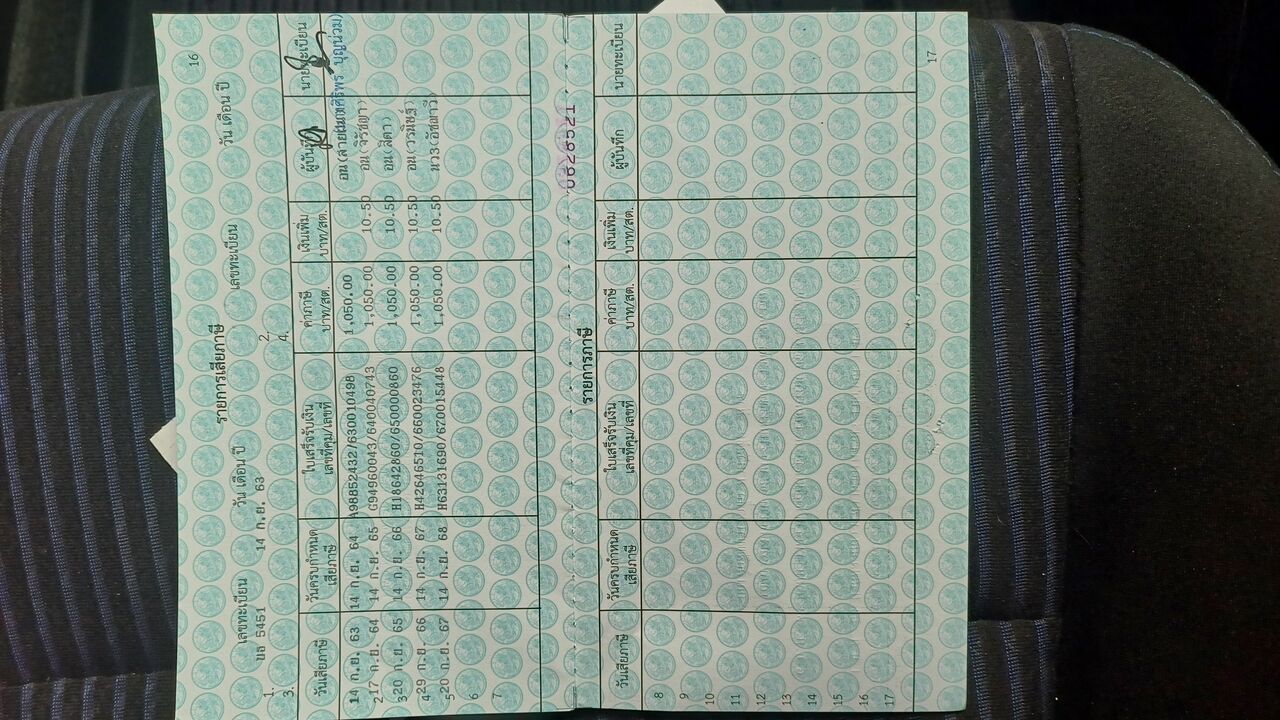 16
รายการเสียภาษี
เลขทะเบียน วัน เดือน ปี เลขทะเบียน วัน เดือน ปี
1. ขธ 5451 14 ก.ย. 63 2.
3. 4.
วันเสียภาษี วันครบกำหนดเสียภาษี ใบเสร็จรับเงิน เลขที่คุม/เลขที่ ค่าภาษี บาท/สต. เงินเพิ่ม บาท/สต. ผู้บันทึก นายทะเบียน
14 ก.ย. 63 14 ก.ย. 64 A98852432/630010498 1,050.00
2 17 ก.ย. 64 14 ก.ย. 65 G94960043/640040743 1,050.00 10.50
3 20 ก.ย. 65 14 ก.ย. 66 H18642060/650000860 1,050.00 10.50 อน(ลิดา)
4 29 ก.ย. 66 14 ก.ย. 67 H42646510/660023476 1,050.00 10.50 อน(วรนิษฐ์)
5 20 ก.ย. 67 14 ก.ย. 68 H63131690/670015448 1,050.00 10.50
6
7
0626521
รายการภาษี
วันเสียภาษี วันครบกำหนดเสียภาษี ใบเสร็จรับเงิน เลขที่คุม/เลขที่ ค่าภาษี บาท/สต. เงินเพิ่ม บาท/สต. ผู้บันทึก นายทะเบียน
8
9
10
11
12
13
14
15
16
17
17